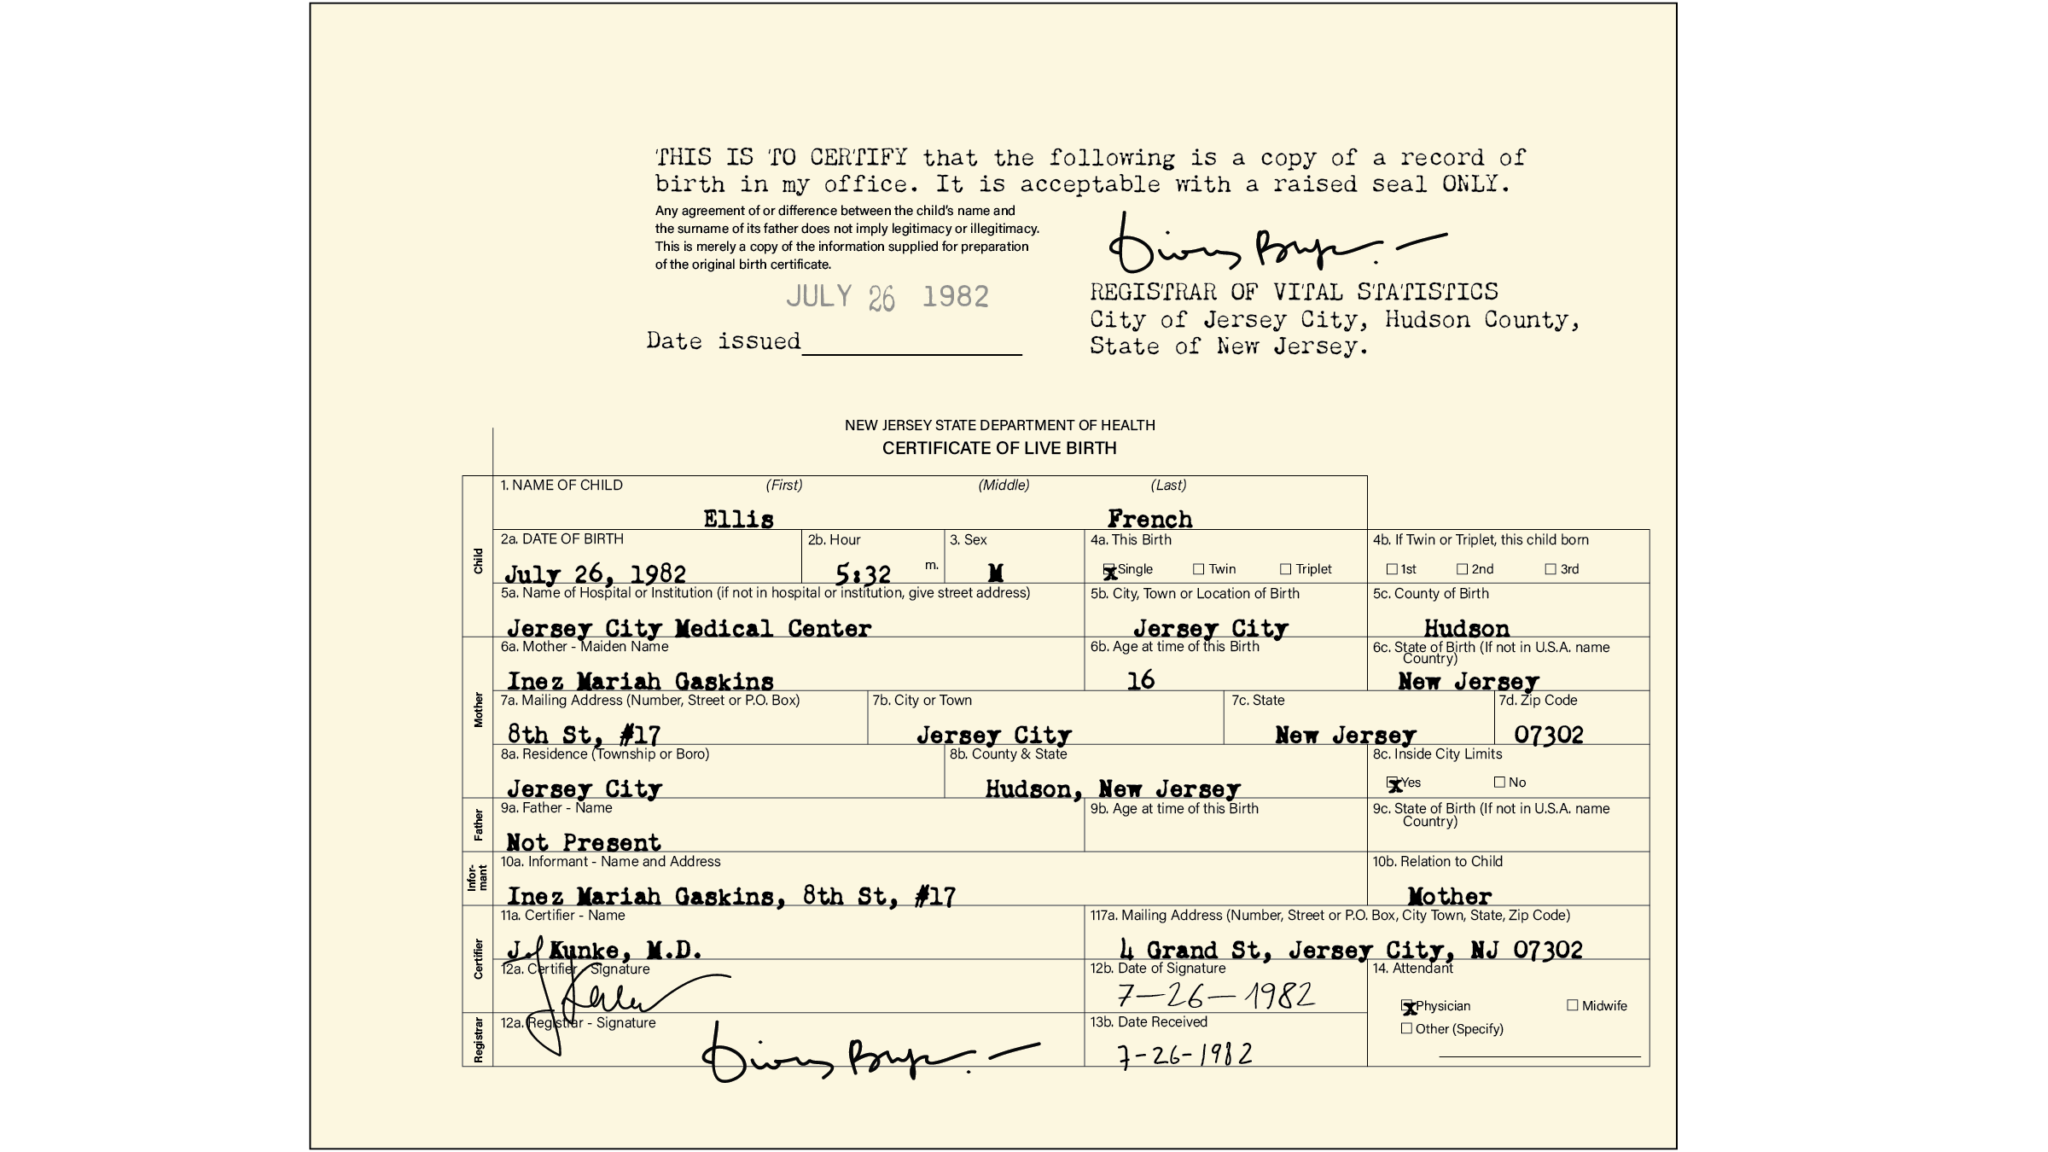 THIS IS TO CERTIFY that the following is a copy of a record of
birth in my office. It is acceptable with a raised seal ONLY.
Any agreement of or difference between the child's name and
the surname of its father does not imply legitimacy or illegitimacy.
This is merely a copy of the information supplied for preparation
of the original birth certificate.
JULY 26 1982
Date issued
REGISTRAR OF VITAL STATISTICS
City of Jersey City, Hudson County,
State of New Jersey.
NEW JERSEY STATE DEPARTMENT OF HEALTH
CERTIFICATE OF LIVE BIRTH
Child
1. NAME OF CHILD (First) (Middle) (Last)
Ellis French
2a. DATE OF BIRTH 2b. Hour 3. Sex 4a. This Birth 4b. If Twin or Triplet, this child born
July 26, 1982 5:32 m. M x Single Twin Triplet 1st 2nd 3rd
5a. Name of Hospital or Institution (if not in hospital or institution, give street address) 5b. City, Town or Location of Birth 5c. County of Birth
Jersey City Medical Center Jersey City Hudson
Mother
6a. Mother - Maiden Name 6b. Age at time of this Birth 6c. State of Birth (If not in U.S.A. name
Country)
Inez Mariah Gaskins 16 New Jersey
7a. Mailing Address (Number, Street or P.O. Box) 7b. City or Town 7c. State 7d. Zip Code
8th St, #17 Jersey City New Jersey 07302
8a. Residence (Township or Boro) 8b. County & State 8c. Inside City Limits
Jersey City Hudson, New Jersey x Yes No
Father
9a. Father - Name 9b. Age at time of this Birth 9c. State of Birth (If not in U.S.A. name
Country)
Not Present
Infor-
mant
10a. Informant - Name and Address 10b. Relation to Child
Inez Mariah Gaskins, 8th St, #17 Mother
Certifier
11a. Certifier - Name 117a. Mailing Address (Number, Street or P.O. Box, City Town, State, Zip Code)
J. Kunke, M.D. 4 Grand St, Jersey City, NJ 07302
12a. Certifier - Signature 12b. Date of Signature 14. Attendant
7-26-1982 x Physician Midwife
Other (Specify)
Registrar
12a. Registrar - Signature 13b. Date Received
7-26-1982